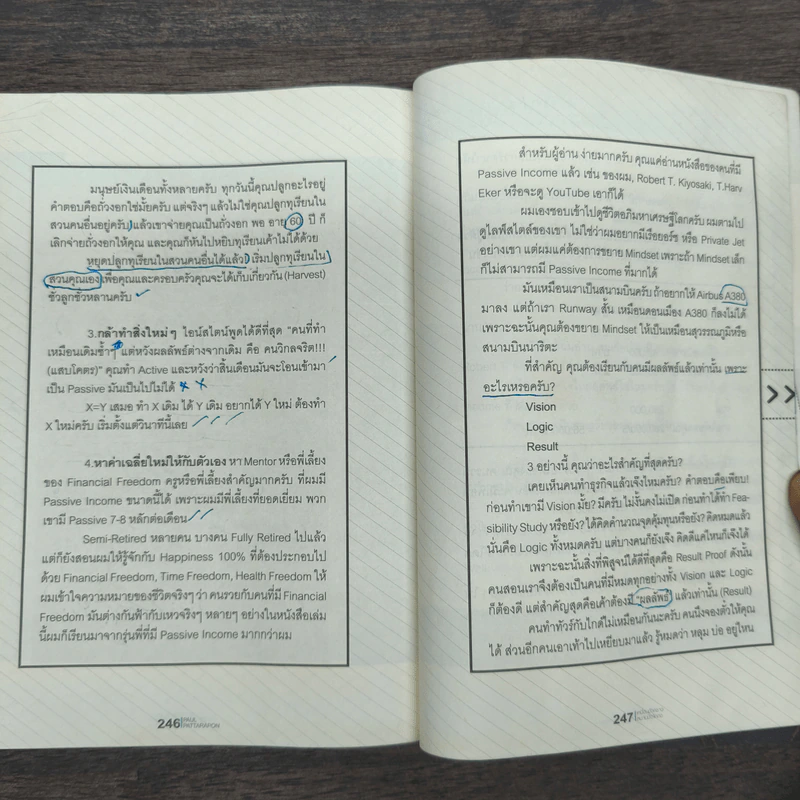 มนุษย์เงินเดือนทั้งหลายครับ ทุกวันนี้คุณปลูกอะไรอยู่
คำตอบคือถั่วงอก ใช่มั้ยครับ แต่จริงๆ แล้วไม่ใช่คุณปลูกทุเรียนใน
สวนคนอื่นอยู่ครับ แล้วเขาจ่ายคุณเป็นถั่วงอก พอ อายุ 60 ปี ก็
เลิกจ่ายถั่วงอกให้คุณ และคุณก็หันไปหยิบทุเรียนเค้าไม่ได้ด้วย
หยุดปลูกทุเรียนในสวนคนอื่นได้แล้ว เริ่มปลูกทุเรียนใน
สวนคุณเอง เพื่อคุณและครอบครัวคุณจะได้เก็บเกี่ยวกัน (Harvest)
ชั่วลูกชั่วหลานครับ
3.กล้าทำสิ่งใหม่ๆ ไอน์สไตน์พูดได้ดีที่สุด "คนที่ทำ
เหมือนเดิมซ้ำๆ แต่หวังผลลัพธ์ต่างจากเดิม คือ คนวิกลจริต!!!
(แสบโคตร)" คุณทำ Active และหวังว่าสิ้นเดือนมันจะโอนเข้ามา
เป็น Passive มันเป็นไปไม่ได้
X=Y เสมอ ทำ X เดิม ได้ Y เดิม อยากได้ Y ใหม่ ต้องทำ
X ใหม่ครับ เริ่มตั้งแต่วินาทีนี้เลย
4.หาค่าเฉลี่ยใหม่ให้กับตัวเอง หา Mentor หรือพี่เลี้ยง
ของ Financial Freedom ครูหรือพี่เลี้ยงสำคัญมากครับ ที่ผมมี
Passive Income ขนาดนี้ได้ เพราะผมมีพี่เลี้ยงที่ยอดเยี่ยม พวก
เขามี Passive 7-8 หลักต่อเดือน
Semi-Retired หลายคน บางคน Fully Retired ไปแล้ว
แต่ก็ยังสอนผมให้รู้จักกับ Happiness 100% ที่ต้องประกอบไป
ด้วย Financial Freedom, Time Freedom, Health Freedom ให้
ผมเข้าใจความหมายของชีวิตจริงๆ ว่า คนรวยกับคนที่มี Financial
Freedom มันต่างกันฟ้ากับเหวจริงๆ หลายๆ อย่างในหนังสือเล่ม
นี้ผมก็เรียนมาจากรุ่นพี่ที่มี Passive Income มากกว่าผม
246 PAUL
PATTARAPON
สำหรับผู้อ่าน ง่ายมากครับ คุณแค่อ่านหนังสือของคนที่มี
Passive Income แล้ว เช่น ของผม, Robert T. Kiyosaki, T.Harv
Eker หรือจะดู YouTube เอาก็ได้
ผมเองชอบเข้าไปดูชีวิตอภิมหาเศรษฐีโลกครับ ผมตามไป
ดูไลฟ์สไตล์ของเขา ไม่ใช่ว่าผมอยากมีเรือยอร์ช หรือ Private Jet
อย่างเขา แต่ผมแค่ต้องการขยาย Mindset เพราะถ้า Mindset เล็ก
ก็ไม่สามารถมี Passive Income ที่มากได้
มันเหมือนเราเป็นสนามบินครับ ถ้าอยากให้ Airbus A380
มาลง แต่ถ้าเรา Runway สั้น เหมือนดอนเมือง A380 ก็ลงไม่ได้
เพราะฉะนั้นคุณต้องขยาย Mindset ให้เป็นเหมือนสุวรรณภูมิหรือ
สนามบินนาริตะ
ที่สำคัญ คุณต้องเรียนกับคนมีผลลัพธ์แล้วเท่านั้น เพราะ
อะไรเหรอครับ?
Vision
Logic
Result
3 อย่างนี้ คุณว่าอะไรสำคัญที่สุดครับ?
เคยเห็นคนทำธุรกิจแล้วเจ๊งไหมครับ? คำตอบคือเพียบ!
ก่อนทำเขามี Vision มั้ย? มีครับ ไม่งั้นคงไม่เปิด ก่อนทำได้ทำ Fea-
sibility Study หรือยัง? ได้คิดคำนวณจุดคุ้มทุนหรือยัง? คิดหมดแล้ว
นั่นคือ Logic ทั้งหมดครับ แต่บางคนก็ยังเจ๊ง คิดดีแค่ไหนก็เจ๊งได้
เพราะฉะนั้นสิ่งที่พิสูจน์ได้ดีที่สุดคือ Result Proof ดังนั้น
คนสอนเราจึงต้องเป็นคนที่มีหมดทุกอย่างทั้ง Vision และ Logic
ก็ต้องดี แต่สำคัญสุดคือเค้าต้องมี "ผลลัพธ์" แล้วเท่านั้น (Result)
คนทำทัวร์กับไกด์ไม่เหมือนกันนะครับ คนนึงจองตั๋วให้คุณ
ได้ ส่วนอีกคนเอาเท้าไปเหยียบมาแล้ว รู้หมดว่า หลุม บ่อ อยู่ไหน
247